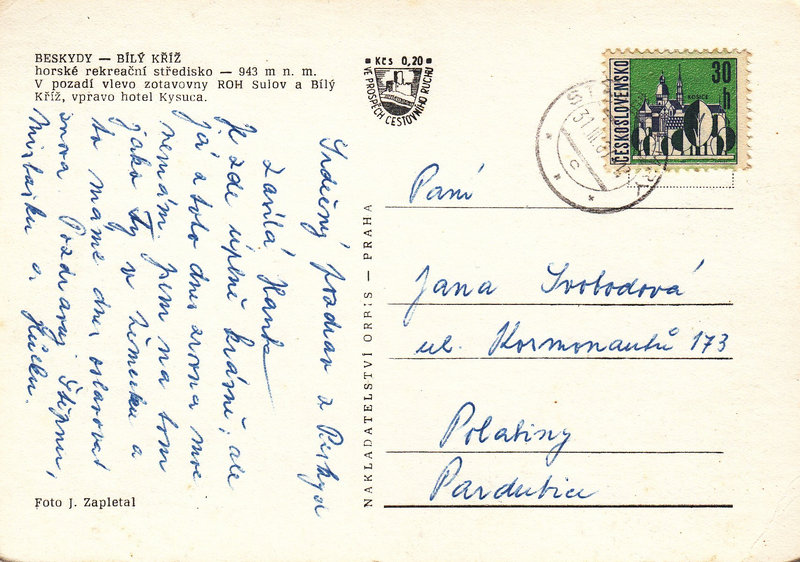 BESKYDY — BÍLÝ KŘÍŽ
horské rekreační středisko — 943 m n. m.
V pozadí vlevo zotavovny ROH Sulov a Bílý
Kříž, vpravo hotel Kysuca.
Kčs 0,20
VE PROSPĚCH CESTOVNÍHO RUCHU
ČESKOSLOVENSKO
30 h
KOŠICE
31.III.
Srdečný pozdrav z Beskyd
zasílá Hanka
Je zde úplně krásně, ale
já z toho dnes zrovna moc
nemám. Jsem na tom
jako Ty v zimě a
to máme dnes oslavovat
znova. Pozdravuj Štěpku,
a
Paní
Jana Svobodová
ul. Kosmonautů 173
Polabiny
Pardubice
NAKLADATELSTVÍ ORBIS — PRAHA
Foto J. Zapletal